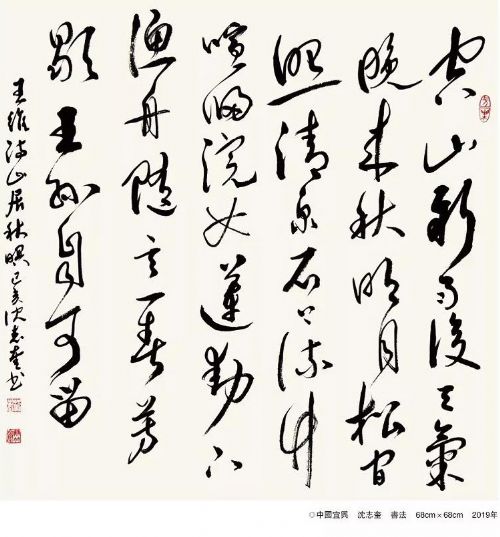 空山新雨後天氣
晚来秋明月松間
照清泉石上流竹
喧歸浣女蓮動下
漁舟隨意春芳
歇王孫自可留
王維詩山居秋暝己亥沈志奎书
◎中國宜興 沈志奎 書法 68cm×68cm 2019年